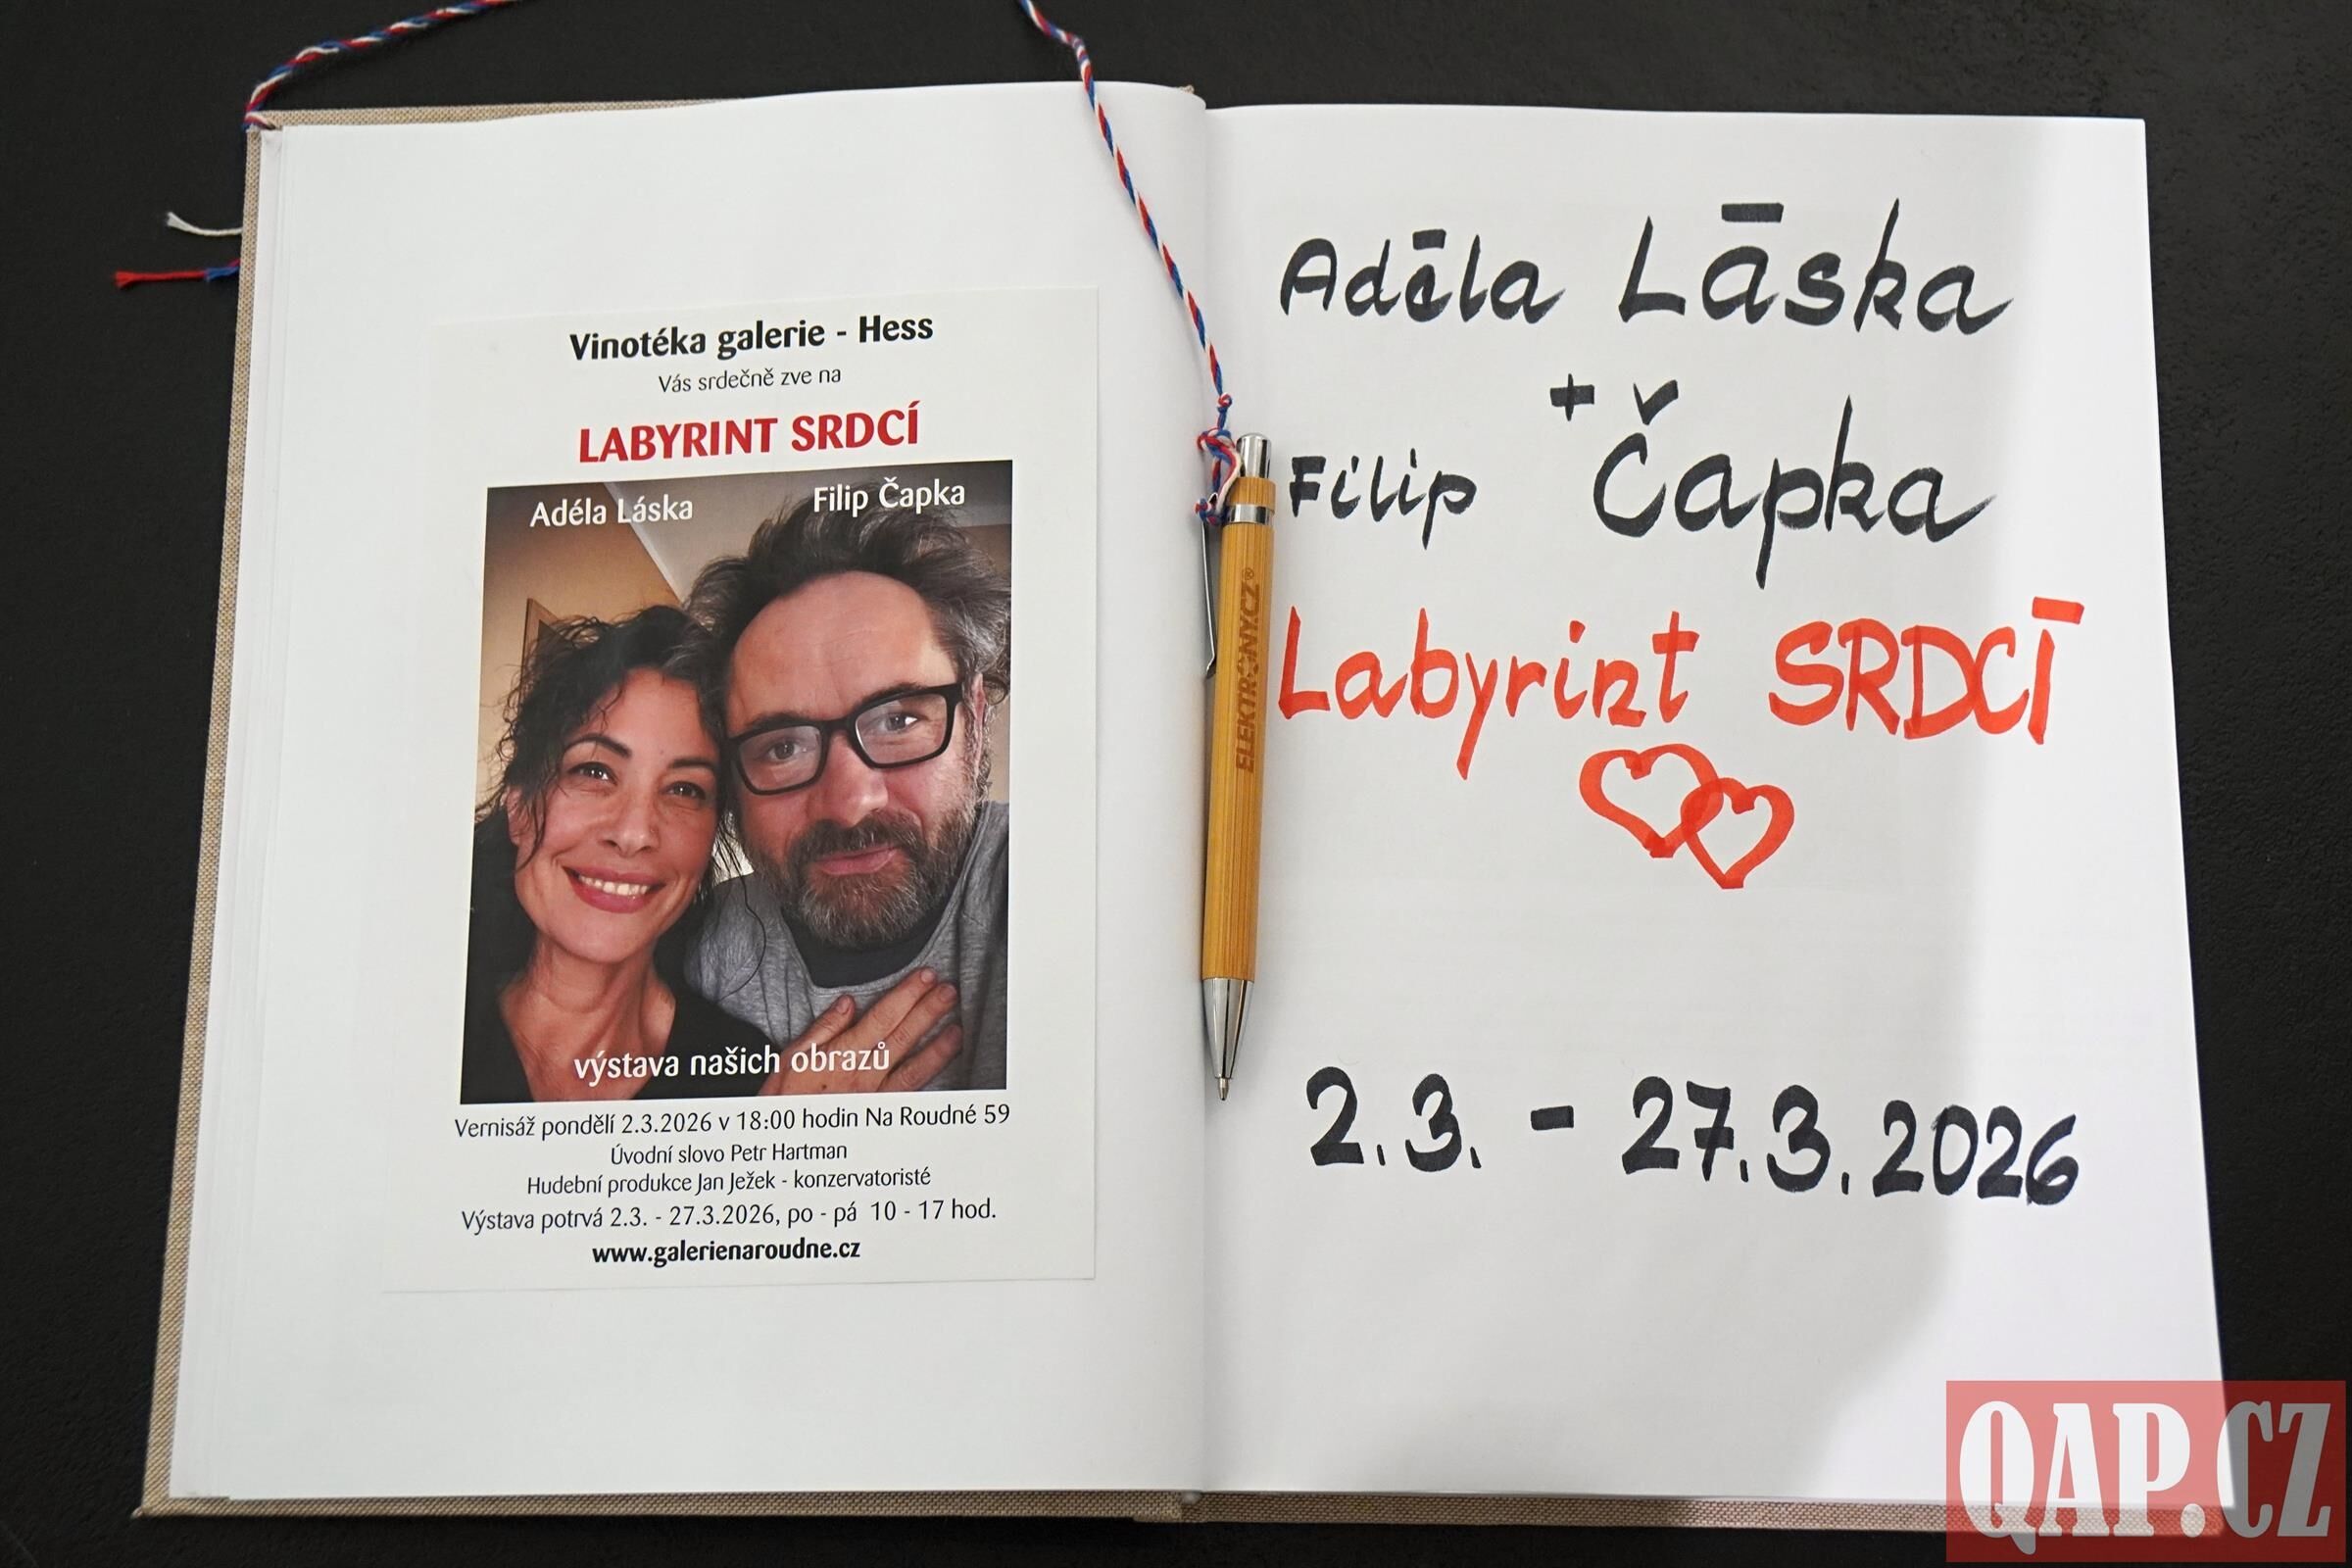 Vinotéka galerie - Hess
Vás srdečně zve na
LABYRINT SRDCÍ
Adéla Láska Filip Čapka
výstava našich obrazů
Vernisáž pondělí 2.3.2026 v 18:00 hodin Na Roudné 59
Úvodní slovo Petr Hartman
Hudební produkce Jan Ježek - konzervatoristé
Výstava potrvá 2.3. - 27.3.2026, po - pá 10 - 17 hod.
www.galerienaroudne.cz
ELEKTRONY.CZ®
Adéla Láska
+
Filip Čapka
Labyrint SRDCÍ
2.3. - 27.3.2026
QAP.CZ